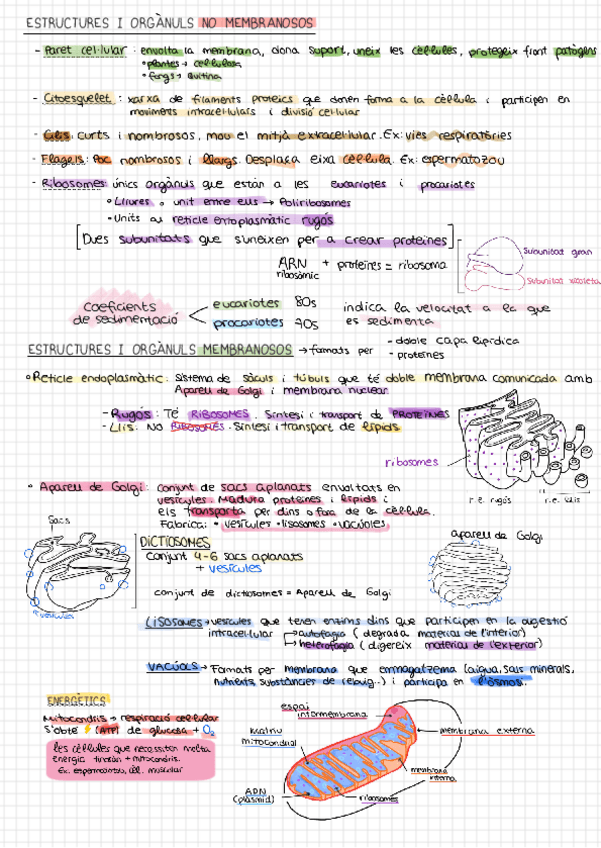 ESTRUCTURES I ORGÀNULS NO MEMBRANOSOS
- Paret cel·lular: envolta la membrana, dona suport, uneix les cèl·lules, protegeix front patògens
•plantes → cel·lulosa
•fongs → quitina
- Citoesquelet: xarxa de filaments proteics que donen forma a la cèl·lula i participen en
moviments intracel·lulars i divisió cel·lular
- Cilis: curts i nombrosos, mou el mitjà extracel·lular. Ex: vies respiratòries
- Flagels: Poc nombrosos i llargs. Desplaça eixa cèl·lula. Ex: espermatozou
- Ribosomes: únics orgànuls que estàn a les eucariotes i procariotes
•Lliures o unit entre ells → Poliribosomes
•Units al reticle endoplasmàtic rugós
[Dues subunitats que s'uneixen per a crear proteïnes]
Subunitat gran
Subunitat xicoteta
ARN + proteïnes = ribosoma
ribosòmic
Coeficients de sedimentació
eucariotes 80s
procariotes 70s
indica la velocitat a la que
es sedimenta
ESTRUCTURES I ORGÀNULS MEMBRANOSOS → formats per
- doble capa lipídica
- proteïnes
•Reticle endoplasmàtic: sistema de sàculs i túbuls que té doble membrana comunicada amb
Aparell de Golgi i membrana nuclear
- Rugós: Té RIBOSOMES. Síntesi i transport de PROTEÏNES
- Llis: NO RIBOSOMES. Síntesi i transport de lípids
ribosomes
r.e. rugós
r.e. llis
• Aparell de Golgi: conjunt de sacs aplanats envoltats en
vesícules. Madura proteïnes i lípids i
els transporta per dins o fora de la cèl·lula.
Fabrica: • vesícules •lisosomes •vacúoles
Sacs
vesícules
DICTIOSOMES
conjunt 4-6 sacs aplanats
+ vesícules
aparell de Golgi
conjunt de dictiosomes = Aparell de Golgi
LISOSOMES → vesícules que tenen enzims dins que participen en la digestió
intracel·lular → autofàgia (degrada matèries de l'interior)
→ heterofàgia (digereix matèries de l'exterior)
VACÚOLS → Formats per membrana que emmagatzema (aigua, sals minerals,
nutrients, substàncies de rebuig..) i participa en l'osmosi.
ENERGÈTICS
Mitocondris → respiració cel·lular
s'obté ATP de glucosa + O₂
les cèl·lules que necessiten molta
energia tindràn + mitocondris.
Ex. espermatozou, cèl. muscular
espai
intermembrana
Matriu
mitocondrial
membrana externa
membrana
interna
ADN
(plàsmid)
ribosomes